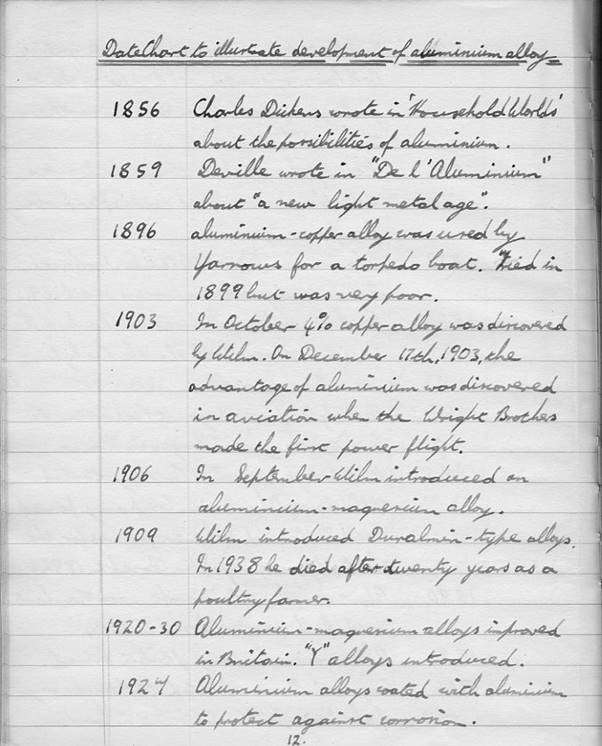 Date Chart to illustrate development of aluminium alloy
1856 Charles Dickens wrote in 'Household Worlds'
about the possibilities of aluminium.
1859 Deville wrote in "De l'Aluminium"
about "a new light metal age".
1896 aluminium-copper alloy was used by
Yarrows for a torpedo boat. Tried in
1899 but was very poor.
1903 In October 4% copper alloy was discovered
by Wilm. On December 17th, 1903, the
advantage of aluminium was discovered
in aviation when the Wright Brothes
made the first power flight.
1906 In September Wilm introduced an
aluminium-magnesium alloy.
1909 Wilm introduced Duralmin-type alloys.
In 1938 he died after twenty years as a
poultry famer.
1920-30 Aluminium-magnesium alloys improved
in Britain. "Y" alloys introduced.
1927 Aluminium alloys coated with aluminium
to protect against corrosion.
12.